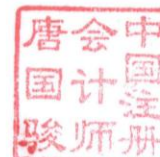 中国注册
会计师
唐国骏